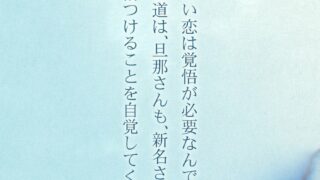 い恋は覚悟が必要なんで
道は、旦那さんも、新名さ
つけることを自覚してく